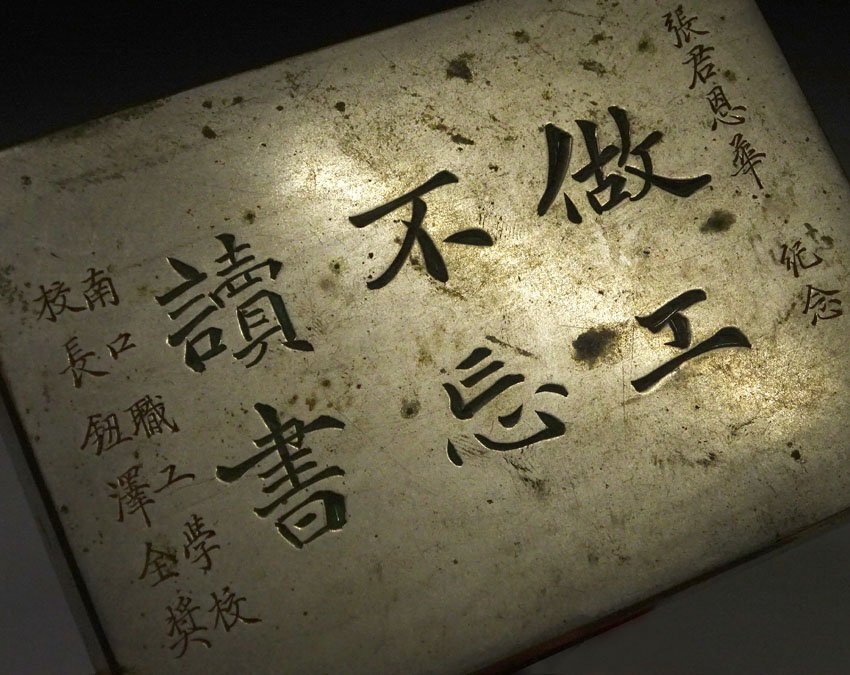 張君恩華 紀念
做工
不忘
讀書
南口職工學校
校長鈕澤全獎